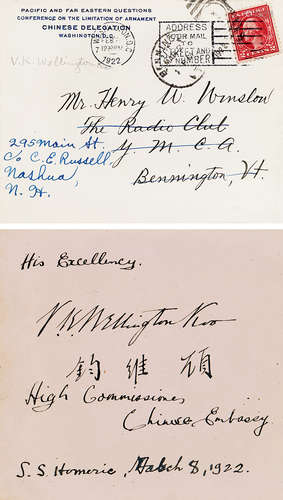 PACIFIC AND FAR EASTERN QUESTIONS
CONFERENCE ON THE LIMITATION OF ARMAMENT
CHINESE DELEGATION
WASHINGTON, D.C.
V.K. Wellington
FEB
1922
ADDRESS
YOUR MAIL
TO
STREET AND
NUMBER
Mr. Henry W. Winslow
The Radio Club
Y. M. C. A.
Bennington, Vt.
295 Main St.
c/o C. E. Russell,
Nashua,
N. H.
His Excellency.
V. K. Wellington Koo
鈞 維 顧
High Commissioner,
Chinese Embassy
S. S. Homeric, March 8, 1922.